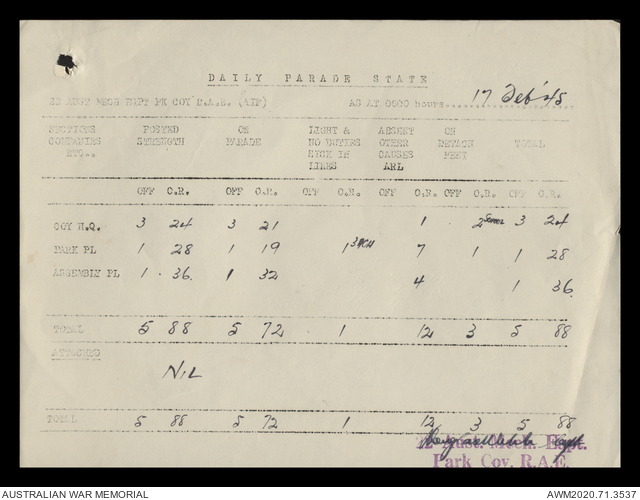 DAILY PARADE STATE
22 AUST MECH EQPT PK COY R.A.E. (AIF) AS AT 0900 hours..... 17 Feb '45
SECTIONS POSTED ON LIGHT & ABSENT ON
COMPANIES STRENGTH PARADE NO DUTIES OTHER DETACH TOTAL
ETC.. SICK IN CAUSES MENT
LINES ARL
OFF O.R. OFF O.R. OFF O.R. OFF O.R. OFF O.R. OFF O.R.
COY H.Q. 3 24 3 21 1 2 3 24
PARK PL 1 28 1 19 1 7 1 1 28
ASSEMBLY PL 1 36 1 32 4 1 36
TOTAL 5 88 5 72 1 12 3 5 88
ATTACHED
NIL
TOTAL 5 88 5 72 1 12 3 5 88
22 Aust. Mech. Eqpt. Capt
Park Coy. R.A.E.
AUSTRALIAN WAR MEMORIAL AWM2020.71.3537